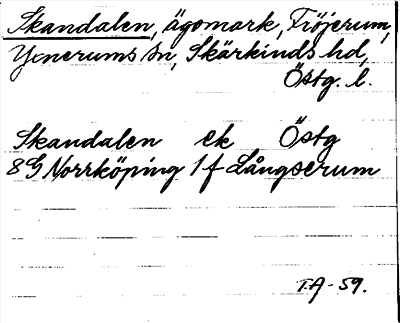 Skandalen, ägomark, Fröjerum,
Yxnerums sn, Skärkinds hd,
Östg. l.
Skandalen ek Östg
8G Norrköping 1f Långserum
T.A-59.